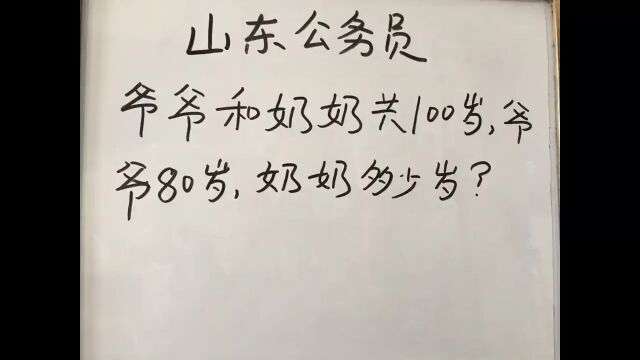 山东公务员
爷爷和奶奶共100岁,爷
爷80岁,奶奶多少岁?